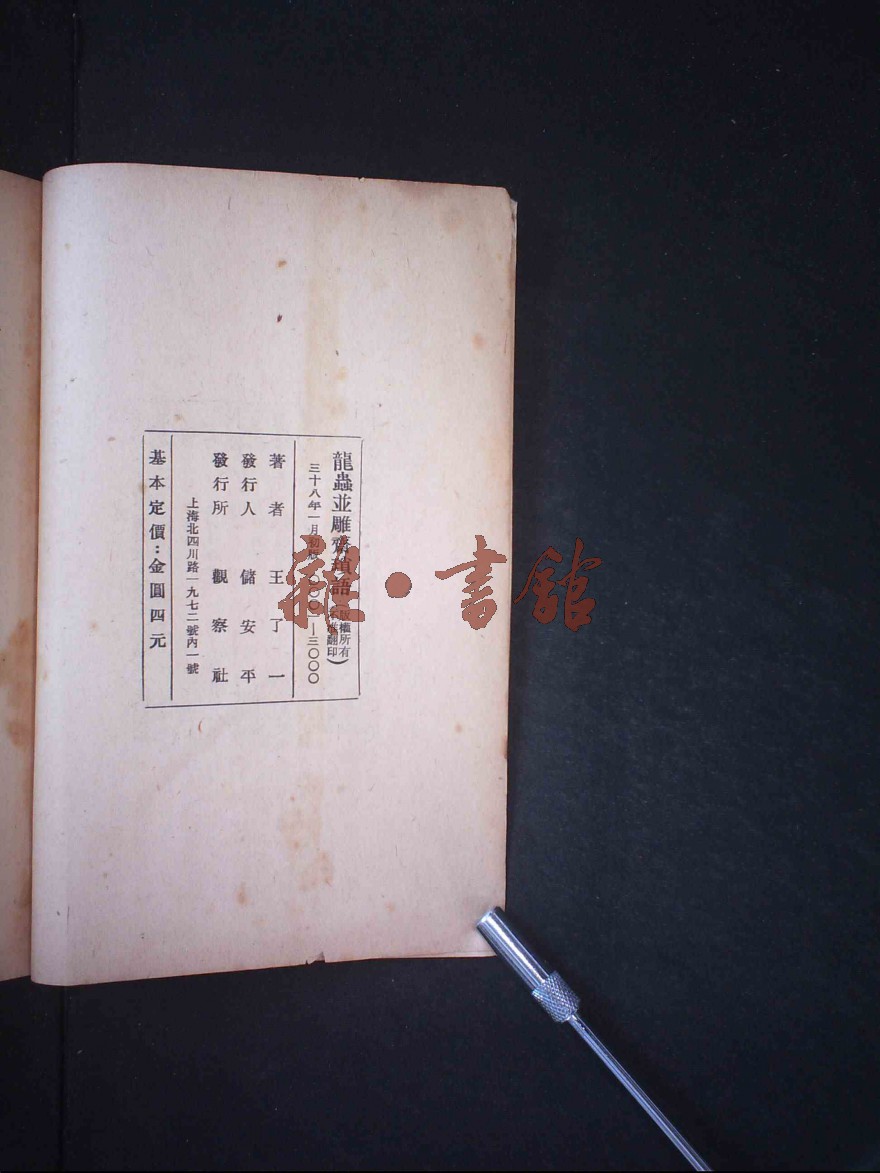 龍蟲並雕齋瑣語
(版權所有
不准翻印)
三十八年一月初版 〇〇〇一—三〇〇〇
著者 王了一
發行人 儲安平
發行所 觀察社
上海北四川路一九七二號內一號
基本定價：金圓四元
雜·書館